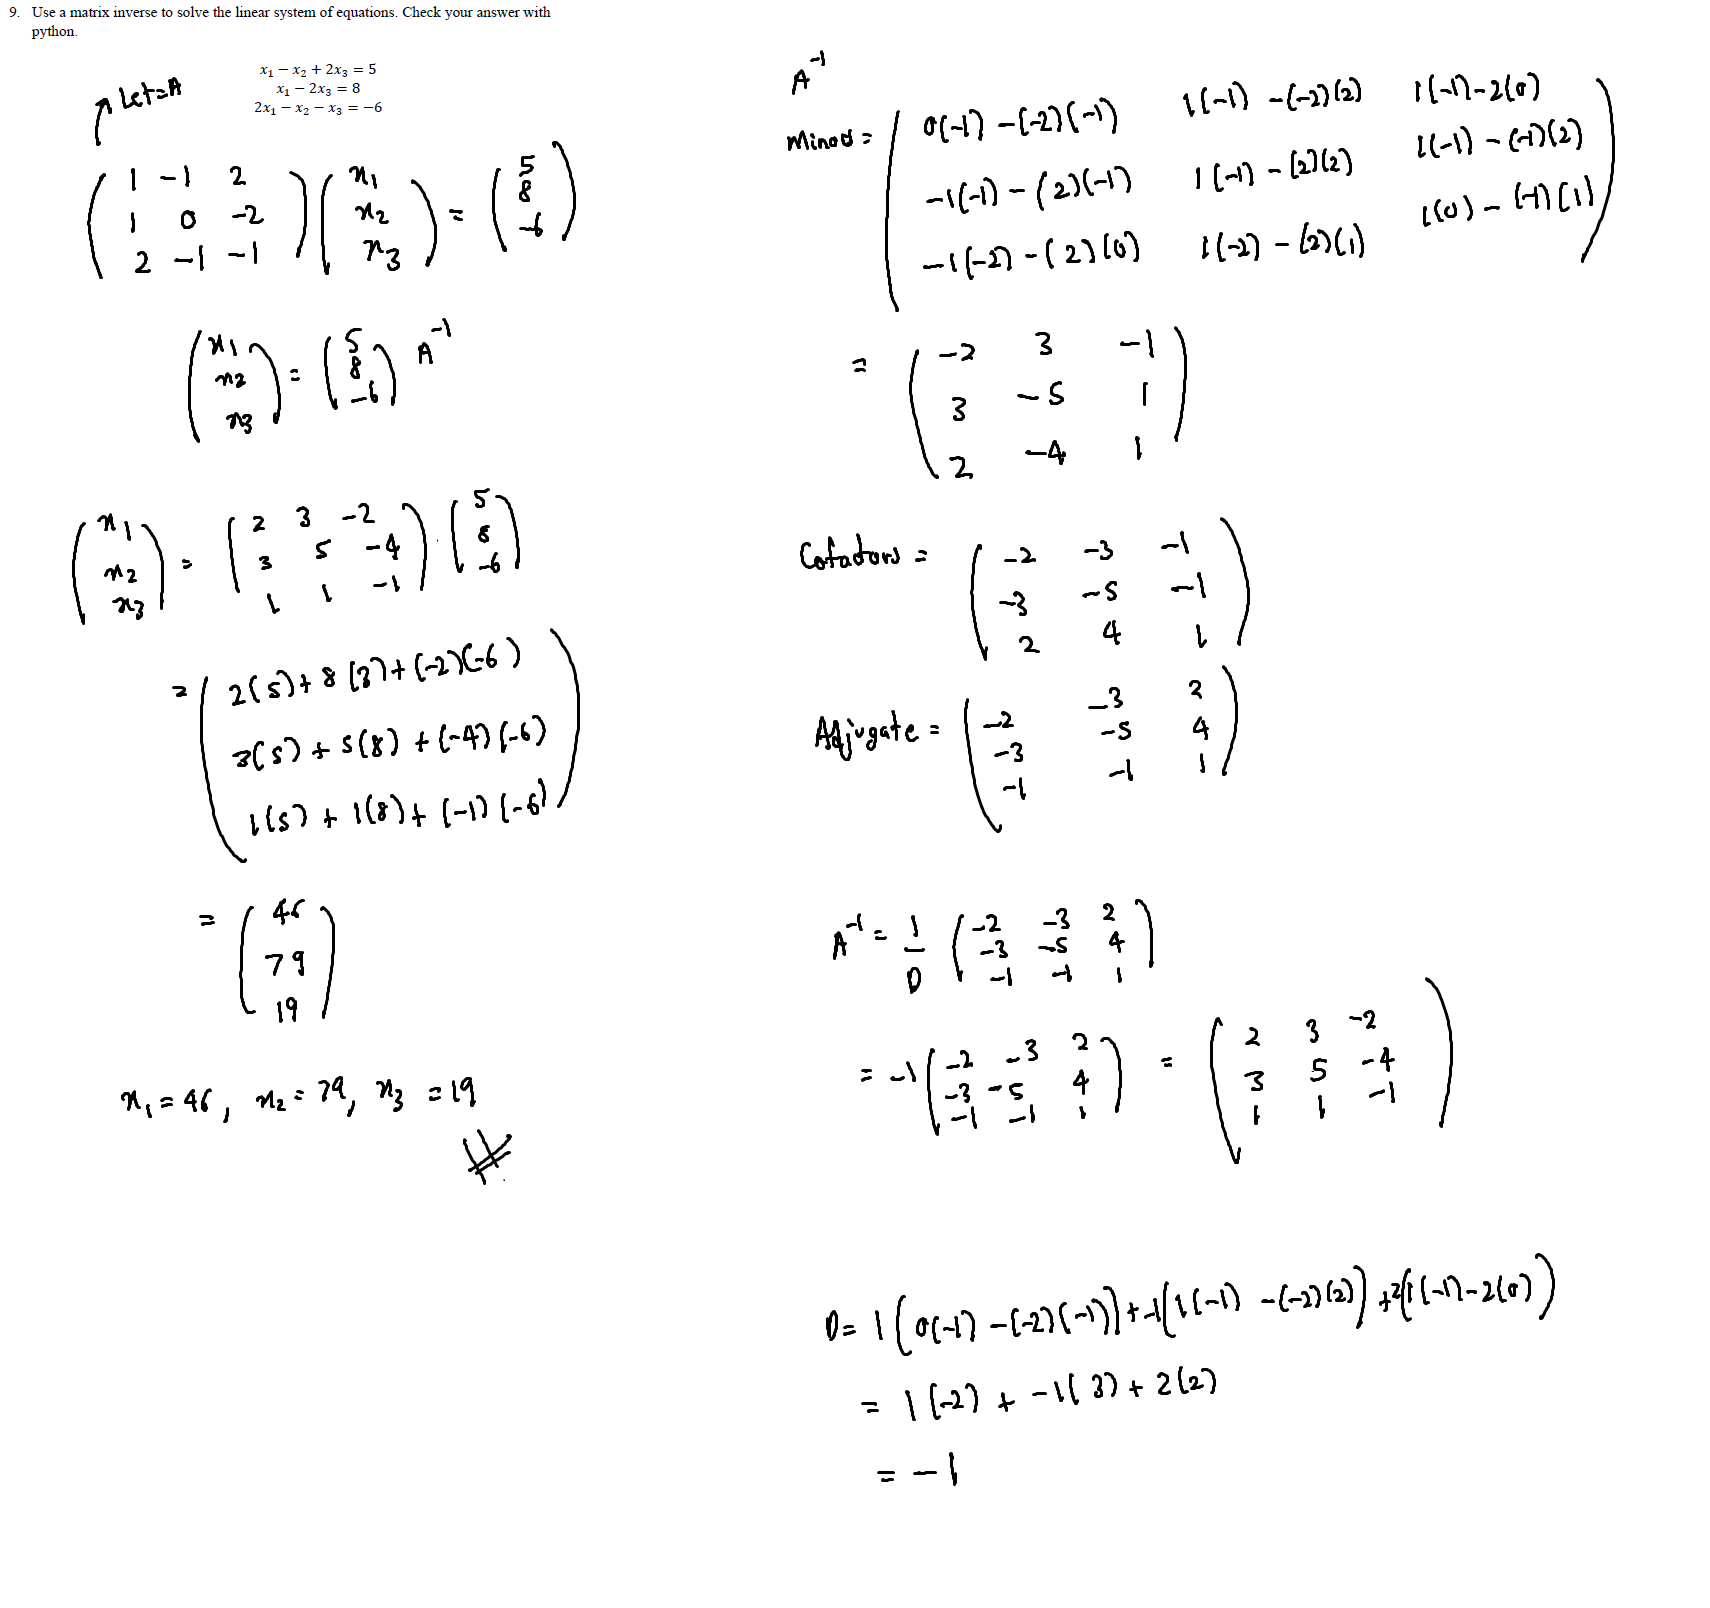 9. Use a matrix inverse to solve the linear system of equations. Check your answer with
python.
x₁ − x₂ + 2x₃ = 5
x₁ − 2x₃ = 8
2x₁ − x₂ − x₃ = −6
Let=A
( 1 -1 2 ) ( x₁ ) = ( 5 )
( 1 0 -2 ) ( x₂ ) ( 8 )
( 2 -1 -1 ) ( x₃ ) ( -6 )
( x₁ ) = ( 5 ) A⁻¹
( x₂ ) ( 8 )
( x₃ ) ( -6 )
( x₁ ) = ( 2 3 -2 ) . ( 5 )
( x₂ ) ( 3 5 -4 ) ( 8 )
( x₃ ) ( 1 1 -1 ) ( -6 )
= ( 2(5)+8(3)+(-2)(-6) )
( 3(5)+5(8)+(-4)(-6) )
( 1(5)+1(8)+(-1)(-6) )
= ( 46 )
( 79 )
( 19 )
x₁ = 46, x₂ = 79, x₃ = 19
A⁻¹
Minors = ( 0(-1) -(-2)(-1) 1(-1) -(-2)(2) 1(-1)-2(0) )
( -1(-1) - (2)(-1) 1(-1) - (2)(2) 1(-1) - (-1)(2) )
( -1(-2) - (2)(0) 1(-2) - (2)(1) 1(0) - (-1)(1) )
= ( -2 3 -1 )
( 3 -5 1 )
( 2 -4 1 )
Cofactors = ( -2 -3 -1 )
( -3 -5 -1 )
( 2 4 1 )
Adjugate = ( -2 -3 2 )
( -3 -5 4 )
( -1 -1 1 )
A⁻¹ = 1/D ( -2 -3 2 )
( -3 -5 4 )
( -1 -1 1 )
= -1 ( -2 -3 2 ) = ( 2 3 -2 )
( -3 -5 4 ) ( 3 5 -4 )
( -1 -1 1 ) ( 1 1 -1 )
D = 1(0(-1) -(-2)(-1)) + -1(1(-1) -(-2)(2)) +2(1(-1)-2(0))
= 1(-2) + -1(3) + 2(2)
= -1